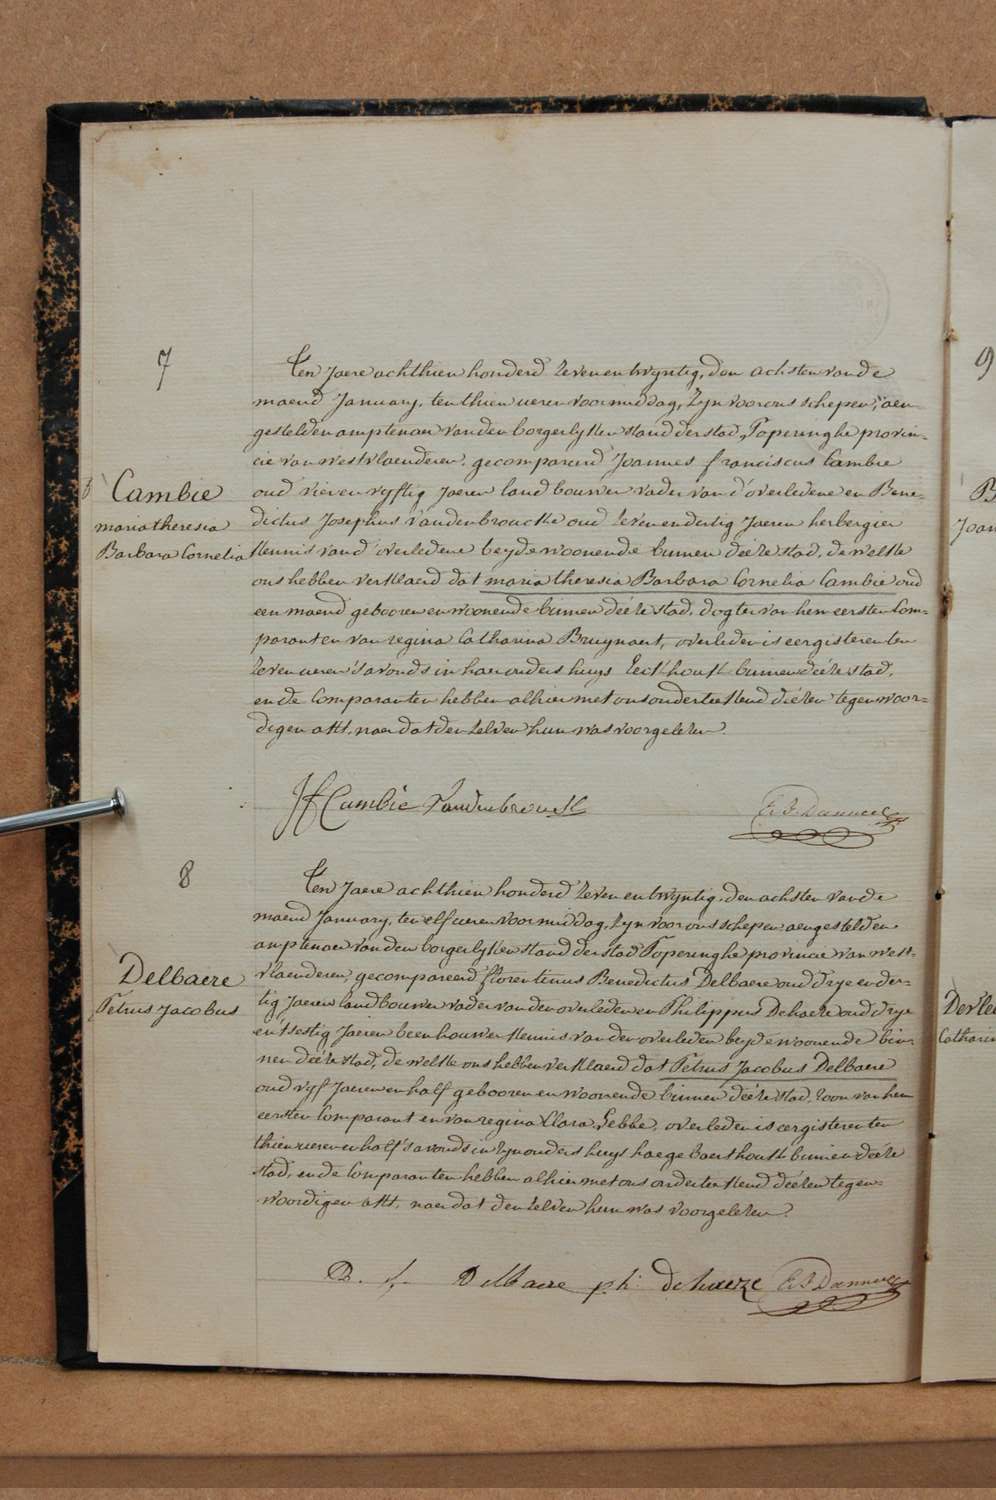 7
Cambie
maria theresia
Barbara Cornelia
Ten Jaere achthien honderd zeven en twyntig, den achsten van de
maend January, ten thien ueren voormiddag, Zyn voor ons schepen, aen-
gestelden amptenaer van den borgerlyken stand der stad, Poperinghe provin-
cie van westvlaenderen, gecompareerd Joannes franciscus Cambie
oud vier en vyftig Jaeren landbouwer vader van d'overledene en Bene-
dictus Josephus Vandenbroucke oud zeven en dertig Jaeren herbergier
kennis vand' overledene beyde woonende binnen dééze stad, de welke
ons hebben verklaerd dat maria theresia Barbara Cornelia Cambie oud
een maend gebooren en woonende binnen déeze stad, dogter van hem eersten Com-
parant en van regina Catharina Bruynaert, overleden is eergisteren ten
zeven ueren s'avonds in haer ouders huys Eeckhout binnen déeze stad,
en de Comparanten hebben alhier met ons onderteekend déezen tegenwoor-
digen akt, naer dat den zelven hun was voorgelezen.
JF Cambie Vandenbrouck
8
Delbaere
Petrus Jacobus
Ten Jaere achthien honderd zeven en twyntig, den achsten van de
maend January, ten elf ueren voormiddag, Zyn voor ons schepen aengestelden
amptenaer van den borgerlyken stand der stad Poperinghe provincie van west-
vlaenderen, gecompareerd florentinus Benedictus Delbaere oud drye en der-
tig Jaeren landbouwer vader van den overleden en Philippus Dehaeze oud drye
en t'sestig Jaeren beenhouwer kennis van den overleden beyde woonende bin-
nen déeze stad, de welke ons hebben verklaerd dat Petrus Jacobus Delbaere
oud vyf Jaeren en half gebooren en woonende binnen déeze stad, zoon van hem
eersten Comparant en van regina Clara Lebbe, overleden is eergisteren ten
thien ueren en half s'avonds in zyn ouders huys haegebaerthoek binnen déeze
stad, en de Comparanten hebben alhier met ons onderteekend déezen tegen-
woordigen akt, naer dat den zelven hun was voorgelezen.
B. f. Delbaere ph: dehaeze
9